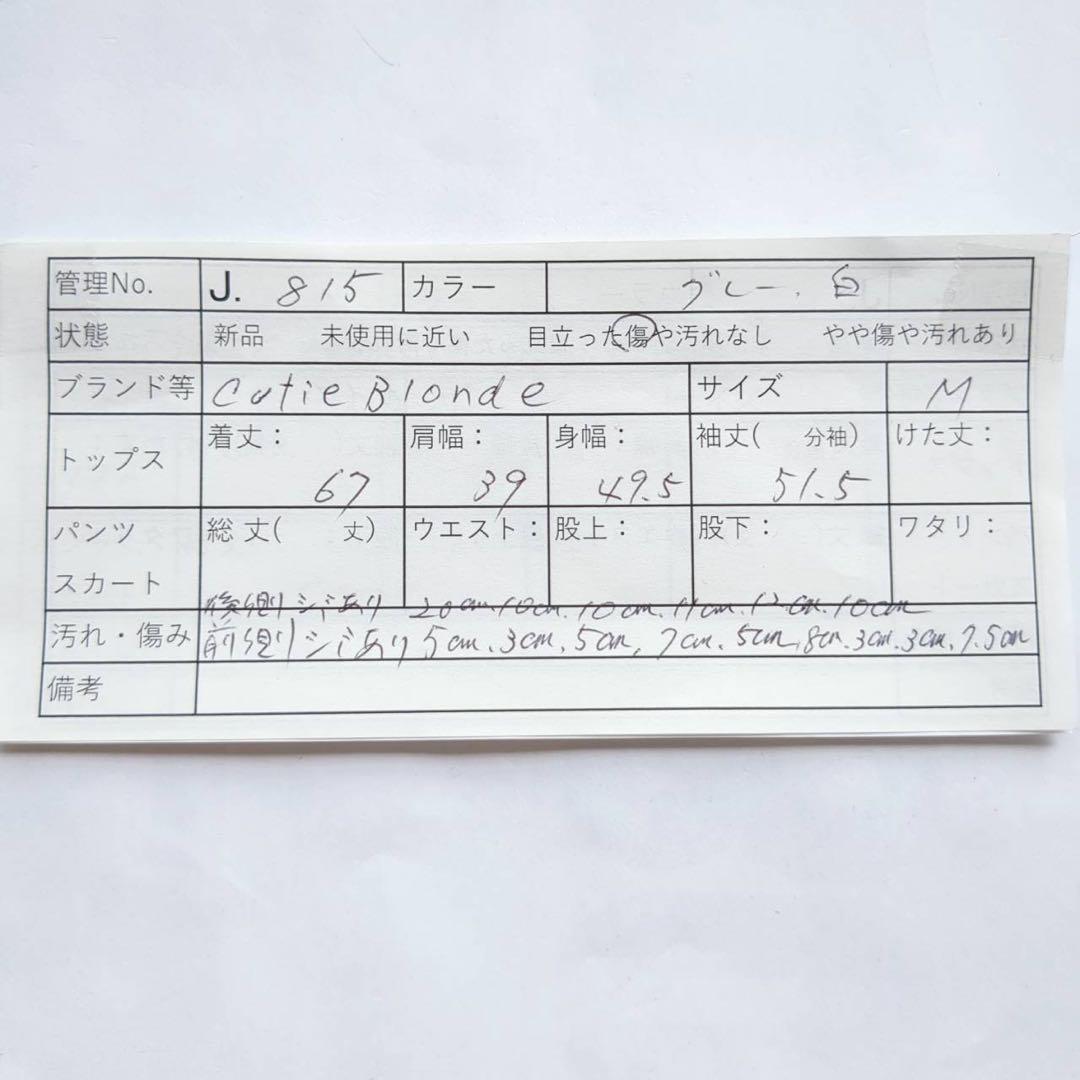 管理No. J. 815 カラー グレー、白
状態 新品 未使用に近い 目立った傷や汚れなし やや傷や汚れあり
ブランド等 Cutie Blonde サイズ M
トップス 着丈： 67 肩幅： 39 身幅： 49.5 袖丈( 分袖) 51.5 けた丈：
パンツ 総丈( 丈) ウエスト： 股上： 股下： ワタリ：
スカート
後側シミあり 20cm、10cm、10cm、11cm、12cm、10cm
汚れ・傷み 前側シミあり 5cm、3cm、5cm、7cm、5cm、8cm、3cm、3cm、7.5cm
備考